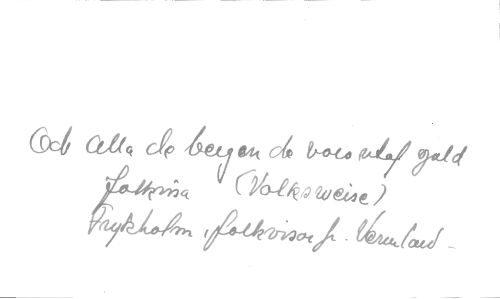 Och alla de bergen de voro utaf guld
folkvisa (Volksweise)
Frykholm, folkvisor fr. Vermland